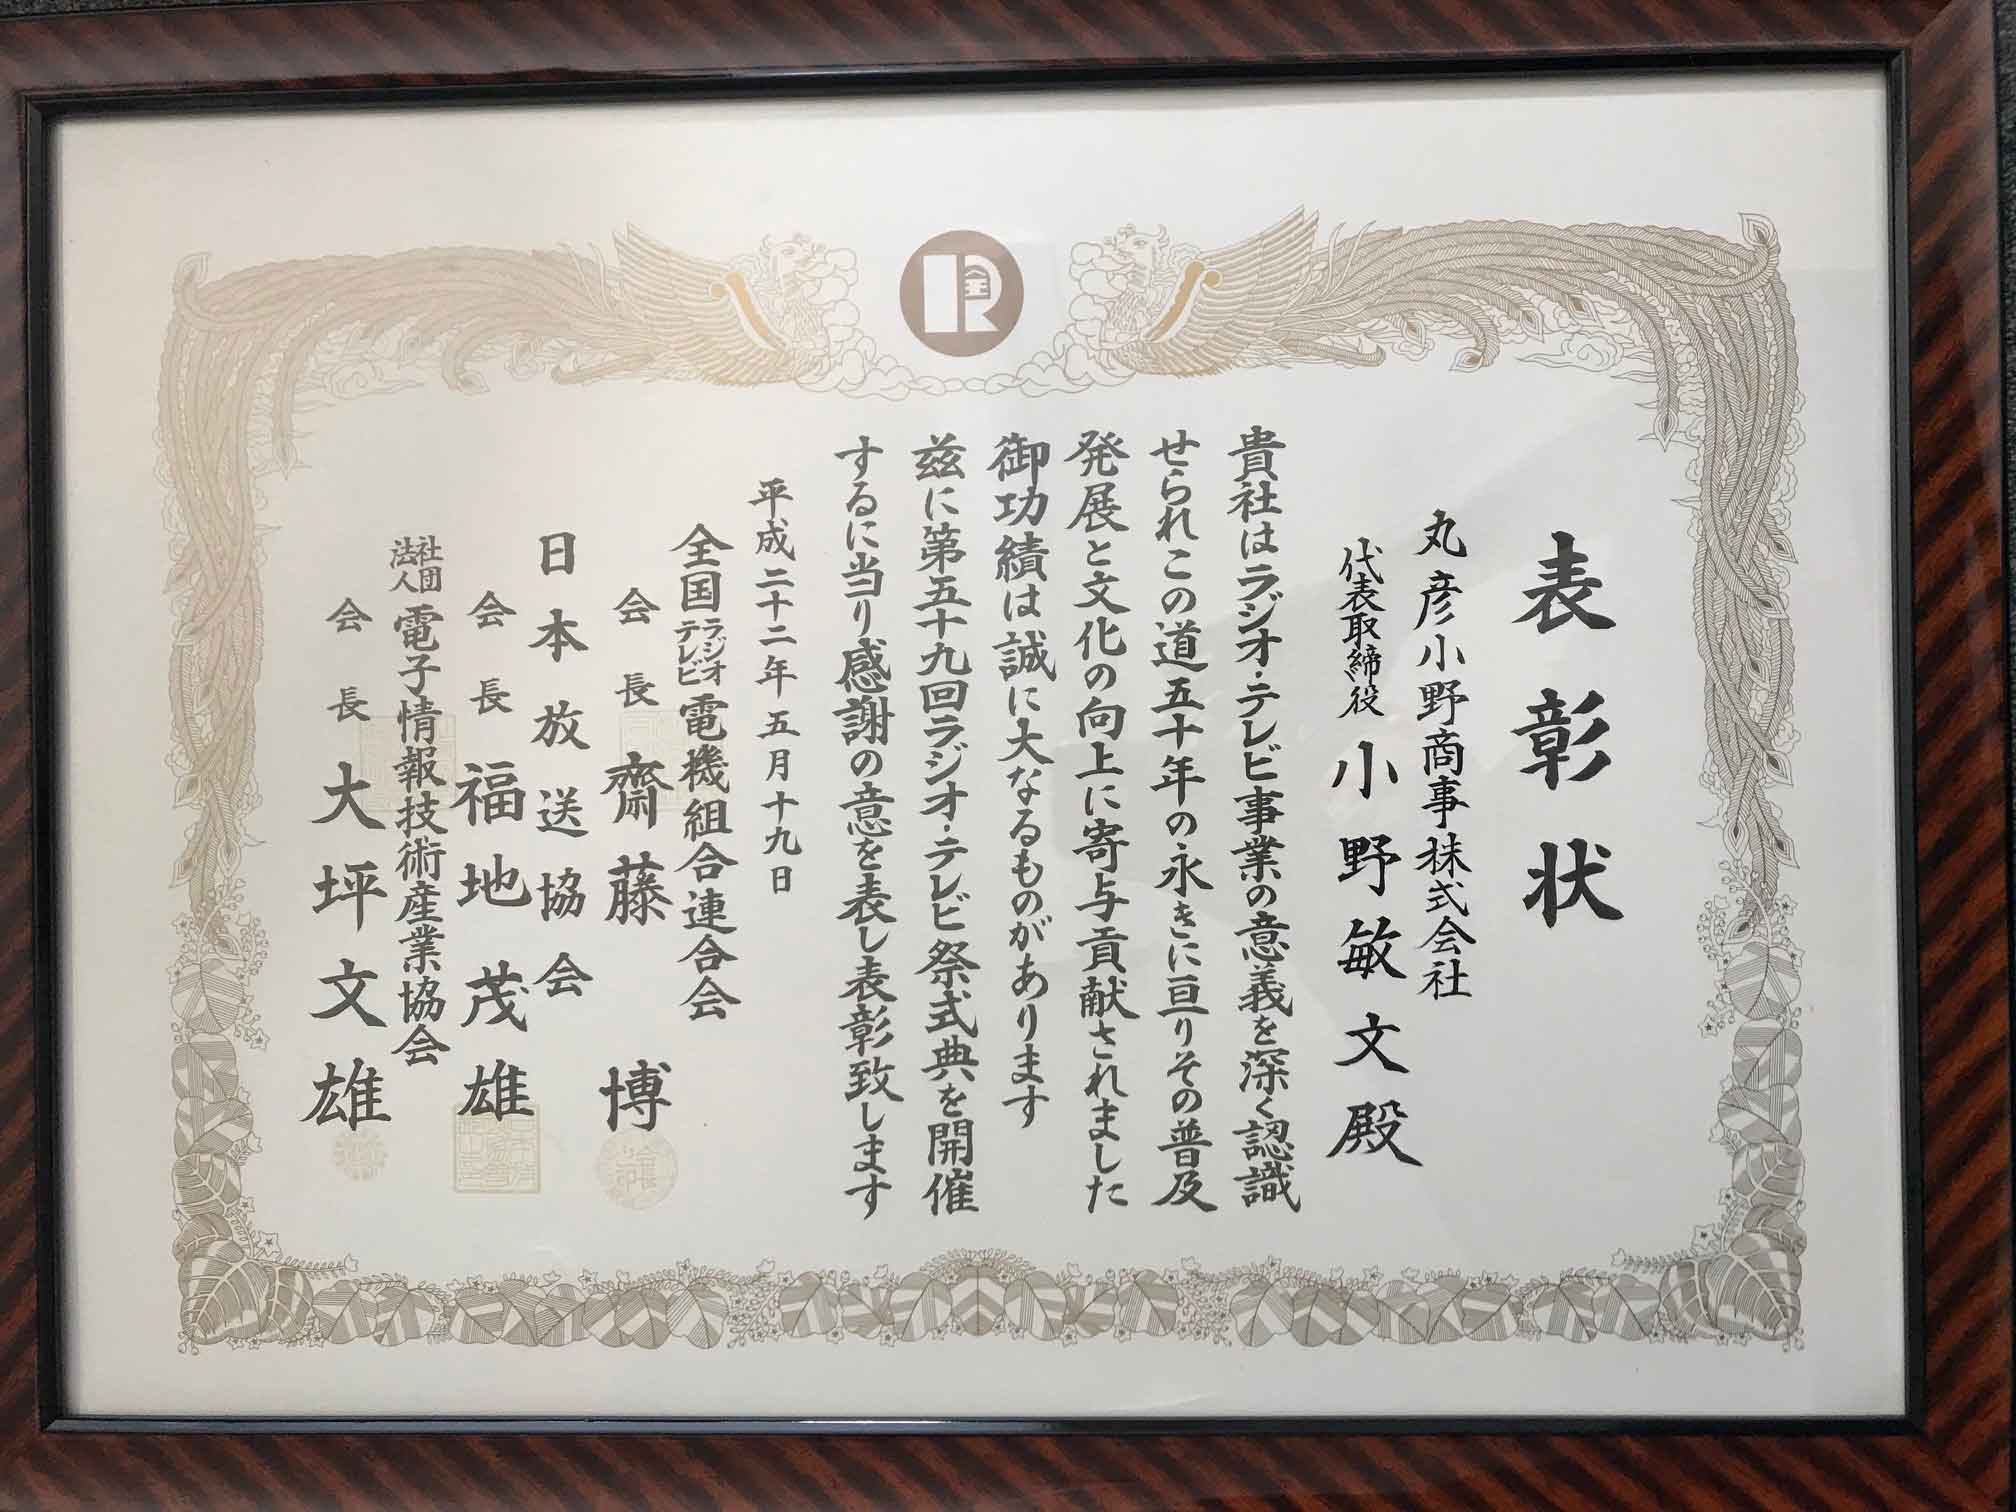 表彰状
丸彦小野商事株式会社
代表取締役 小野敏文殿
貴社はラジオ・テレビ事業の意義を深く認識
せられこの道五十年の永きに亘りその普及
発展と文化の向上に寄与貢献されました
御功績は誠に大なるものがあります
茲に第五十九回ラジオ・テレビ祭式典を開催
するに当り感謝の意を表し表彰致します
平成二十二年五月十九日
全国ラジオテレビ電機組合連合会
会長 齋藤 博
日本放送協会
会長 福地茂雄
社団法人電子情報技術産業協会
会長 大坪文雄